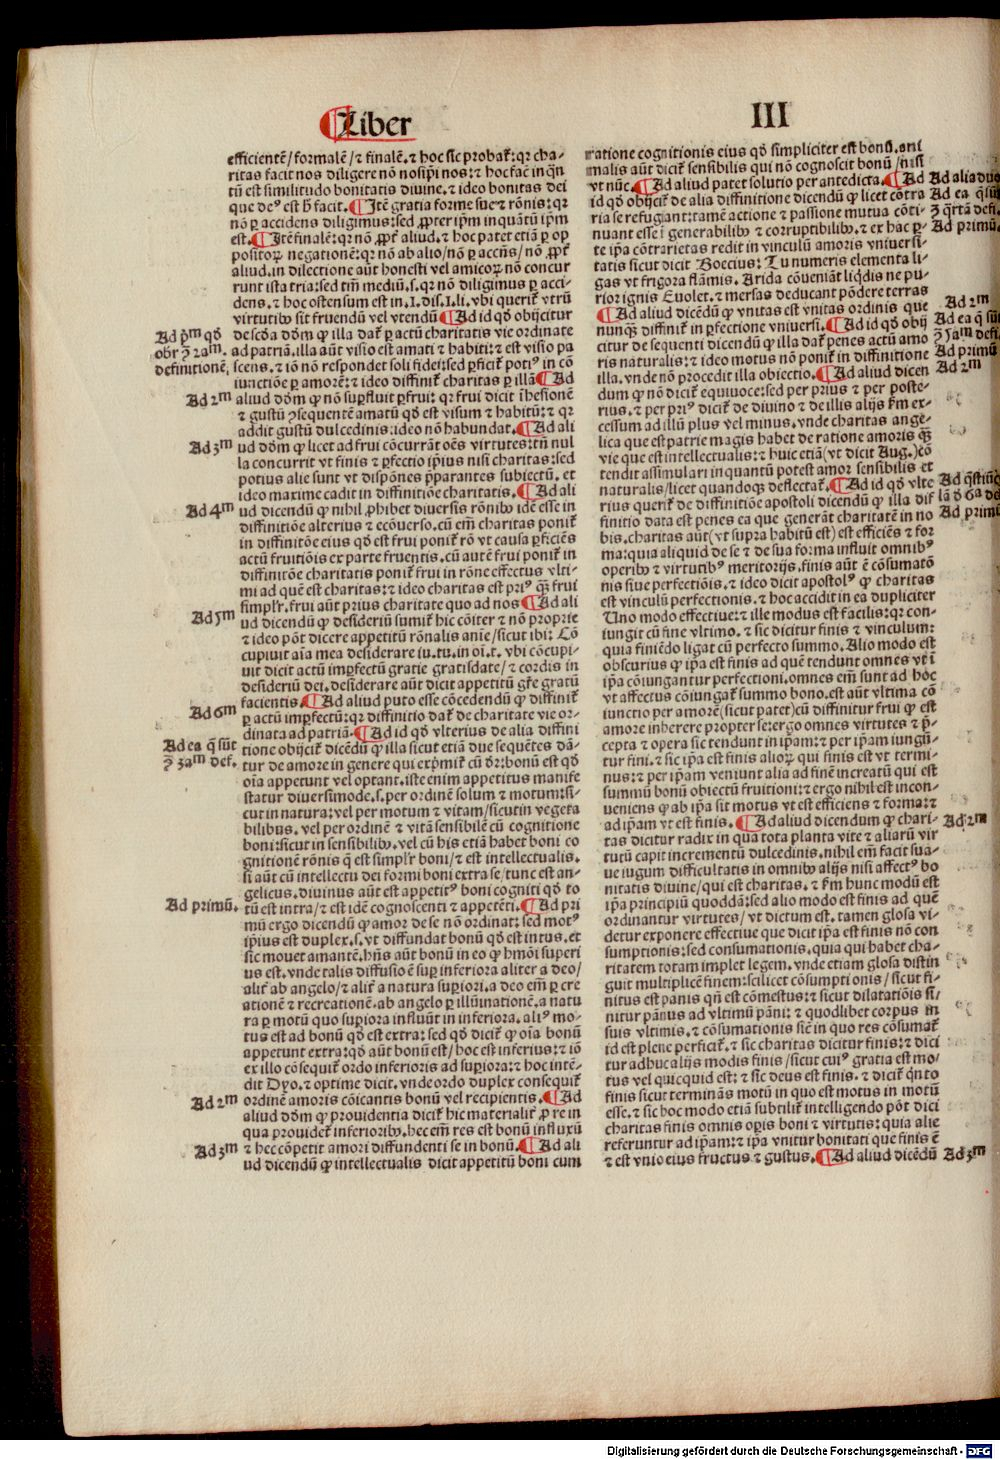 Liber III
efficientē/formalē/⁊ finalē.⁊ hoc sic probaƭ:qꝛ cha-
ritas facit nos diligere nō nosip̄i nos:⁊ hoc
tū est similitudo bonitatis diuine.⁊ ideo bonitas dei
est.¶Itē finale:qꝛ nō ꝓpƭ aliud.⁊ hoc patet etiā ꝑ op
positoꝝ negationē:qꝛ nō ab alio/nō ꝑ accn̄s/nō ꝓpƭ
aliud.in dilectione aūt honesti vel amicoꝝ nō concur
runt ista tria:sed tm̄ mediū.s.qꝛ nō diligimus ꝑ acci-
dens.⁊ hoc ostensum est in.1.dis.1.li.vbi queriƭ vtrū
virtutibꝰ sit fruendū vel vtendū ¶Ad id qd̄ obijcitur
Ad pͫm qd̄
obr ꝯ 2am.
definitionē.
ad patriā.illa aūt visio est amati ⁊ habiti:⁊ est visio pa
scens.⁊ iō nō respondet soli fidei:sed ꝑficiƭ potiꝰ in cō
iunctiōe ꝑ amorē:⁊ ideo diffiniƭ charitas ꝑ illā ¶Ad
Ad 2m
aliud dōm ꝙ nō suꝑfluit ꝑfrui:qꝛ frui dicit īhesionē
⁊ gustū ꝯsequentē amatū qd̄ est visum ⁊ habitū:⁊ qꝛ
addit gustū dulcedinis:ideo nō habundat.¶Ad ali
Ad 3m
ud dōm ꝙ licet ad frui cōcurrāt oēs virtutes:tn̄ nul
la concurrit vt finis ⁊ ꝑfectio ip̄ius nisi charitas:sed
potius alie sunt vt dispōnes p̄parantes subiectū.et
ideo maxime cadit in diffinitiōe charitatis.¶Ad ali
Ad 4m
ud dicendū ꝙ nihil ꝓhibet diuersis rōnibꝰ idē esse in
diffinitiōe alterius ⁊ ecōuerso.cū em̄ charitas poniƭ
in diffinitōe eius qd̄ est frui poniƭ rō vt causa ꝑficiēs
actū fruitiōis ex parte fruentis.cū autē frui poniƭ in
diffinitōe charitatis poniƭ frui in rōne effectus vlti-
mi ad quē est charitas:⁊ ideo charitas est priꝰ qꝫ̄ frui
simplr̄.frui aūt prius charitate quo ad nos ¶Ad ali
Ad 5m
ud dicendū ꝙ desideriū sumiƭ hic cōiter ⁊ nō proprie
⁊ ideo pōt dicere appetitū rōnalis anīe/sicut ibi: Cō
cupiuit aīa mea desiderare iu.tu.in oī.t.vbi cōcupi-
uit dicit actū imꝑfectū gratie gratisdate/⁊ cordis in
desideriū dei.desiderare aūt dicit appetitū gƭe gratū
facientis.¶Ad aliud puto esse cōcedendū ꝙ diffiniƭ
Ad 6m
ꝑ actū imꝑfectū:qꝛ diffinitio daƭ de charitate vie or-
dinata ad patriā.¶Ad id qd̄ vlterius de alia diffini
Ad ea q̄ sūt
ꝯ 3am def.
tione obijciƭ dicēdū ꝙ illa sicut etiā due sequētes dā-
tur de amore in genere qui exp̄miƭ cū dr̄:bonū est qd̄
oīa appetunt vel optant.iste enim appetitus manife
statur diuersimode.s.per ordinē solum ⁊ motum:si-
cut in natura:vel per motum ⁊ vitam/sicut in vegeta
bilibus.vel per ordinē ⁊ vitā sensibilē cū cognitione
boni:sicut in sensibilibꝰ.vel cū his etiā habet boni co
gnitionē rōnis q̄ est simplr̄ boni/⁊ est intellectualis.
si aūt cū intellectu dei formi boni extra se/tunc est an-
gelicus.diuinus aūt est appetitꝰ boni cogniti qd̄ to
Ad primū.
tū est intra/⁊ est idē cognoscenti ⁊ appetēti.¶Ad pri
mū ergo dicendū ꝙ amor de se nō ordinat:sed motꝰ
ip̄ius est duplex.s.vt diffundat bonū qd̄ est intus.et
sic mouet amantē.hn̄s aūt bonū in eo ꝙ hm̄oi superi
us est.vnde talis diffusio ē suꝑ inferiora aliter a deo/
aliƭ ab angelo/⁊ aliƭ a natura suꝑiori.a deo em̄ ꝑ cre
ationē ⁊ recreationē.ab angelo ꝑ illūinationē.a natu
ra ꝑ motū quo suꝑiora influūt in inferiora.aliꝰ mo-
tus est ad bonū qd̄ est extra:sed qd̄ diciƭ ꝙ oīa bonū
appetunt extra:qd̄ aūt bonū est/hoc est inferius:⁊ iō
ex illo cōsequiƭ ordo inferioris ad suꝑiora:⁊ hoc intē-
dit Dyo.⁊ optime dicit.vnde ordo duplex consequiƭ
Ad 2m
ordinē amoris cōicantis bonū vel recipientis.¶Ad
aliud dōm ꝙ prouidentia diciƭ hic materialiƭ ꝓ re in
qua prouideƭ inferioribꝰ.hec em̄ res est bonū influxū
Ad 3m
⁊ hec cōpetit amori diffundenti se in bonū.¶Ad ali
ud dicendū ꝙ intellectualis dicit appetitū boni cum
ratione cognitionis eius qd̄ simpliciter est bonū.ani
malis aūt dicit sensibilis qui nō cognoscit bonū/nisi
vt nūc.¶Ad aliud patet solutio per antedicta.¶Ad
Ad alia duo
Ad ea q̄ sūt
ꝯ q̄rtā defi.
Ad primū.
id qd̄ obijciƭ de alia diffinitione dicendū ꝙ licet cōtra
ria se refugiant:tamē actione ⁊ passione mutua cōti-
nuant esse ī generabilibꝰ ⁊ corruptibilibꝰ.⁊ ex hac ꝑ-
te ip̄a cōtrarietas redit in vinculū amoris vniuersi-
tatis sicut dicit Boecius: Tu numeris elementa li-
gas vt frigora flāmis. Arida cōueniāt liq̇dis ne pu-
rior ignis Euolet.⁊ mersas deducant pōdere terras
Ad 2m
¶Ad aliud dicēdū ꝙ vnitas est vnitas ordinis que
nunqꝫ diffiniƭ in ꝑfectione vniuersi.¶Ad id qd̄ obij
Ad ea q̄ sūt
ꝯ 5am defi.
Ad primū
citur de sequenti dicendū ꝙ illa daƭ penes actū amo
ris naturalis:⁊ ideo motus nō poniƭ in diffinitione
illa.vnde nō procedit illa obiectio.¶Ad aliud dicen
Ad 2m
dum ꝙ nō diciƭ equiuoce:sed per prius ⁊ per poste-
rius.⁊ per priꝰ diciƭ de diuino ⁊ de illis alijs ẜm ex-
cessum ad illū plus vel minus.vnde charitas ange-
lica que est patrie magis habet de ratione amoris qꝫ̄
vie que est intellectualis:⁊ huic etiā(vt dicit Aug.)cō
tendit assimulari inquantū potest amor sensibilis et
naturalis/licet quandoqꝫ deflectaƭ.¶Ad id qd̄ vlte
Ad primū
rius queriƭ de diffinitiōe apostoli dicendū ꝙ illa dif
finitio data est penes ea que generāt charitatē in no
bis.charitas aūt(vt supra habitū est)est efficiēs ⁊ for
ma:quia aliquid de se ⁊ de sua forma influit omnibꝰ
operibꝰ ⁊ virtutibꝰ meritorijs.finis aūt ē cōsumatō
nis siue perfectiōis.⁊ ideo dicit apostolꝰ ꝙ charitas
est vinculū perfectionis.⁊ hoc accidit in ea dupliciter
Uno modo effectiue:⁊ ille modus est facilis:qꝛ con-
iungit cū fine vltimo.⁊ sic dicitur finis ⁊ vinculum:
quia finiēdo ligat cū perfecto summo. Alio modo est
obscurius ꝙ ip̄a est finis ad quē tendunt omnes vt ī
ip̄a cōiungantur perfectioni.omnes em̄ sunt ad hoc
vt affectus cōiungaƭ summo bono.est aūt vltima cō
iunctio per amorē(sicut patet)cū diffinitur frui ꝙ est
amore inherere propter se:ergo omnes virtutes ⁊ p̄-
cepta ⁊ opera sic tendunt in ip̄am:⁊ per ip̄am iungū-
tur fini.⁊ sic ip̄a est finis alioꝝ qui finis est vt termi-
nus:⁊ per ip̄am veniunt alia ad finē increatū qui est
summū bonū obiectū fruitioni:⁊ ergo nihil est incon-
ueniens ꝙ ab ip̄a sit motus vt est efficiens ⁊ forma:⁊
ad ip̄am vt est finis.¶Ad aliud dicendum ꝙ chari-
Ad 2m
tas dicitur radix in qua tota planta vite ⁊ aliarū vir
tutū capit incrementū dulcedinis.nihil em̄ facit sua-
ue iugum difficultatis in omnibꝰ alijs nisi affectꝰ bo
nitatis diuine/qui est charitas.⁊ ẜm hunc modū est
ip̄a principiū quoddā:sed alio modo est finis ad quē
ordinantur virtutes/vt dictum est.tamen glosa vi-
detur exponere effectiue que dicit ip̄a est finis nō con
sumptionis:sed consumationis.quia qui habet cha-
ritatem totam implet legem.vnde etiam glosa distin
guit multiplicē finem:scilicet cōsumptionis/sicut fi-
nitus est panis qn̄ est cōmestus:⁊ sicut dilatatiōis si/
nitur pānus ad vltimū pāni:⁊ quodlibet corpus in
suis vltimis.⁊ cōsumationis sic̄ in quo res cōsumaƭ
id est plene perficiƭ.⁊ sic charitas dicitur finis:⁊ dici
tur adhuc alijs modis finis/sicut cuiꝰ gratia est mo/
tus vel quicquid est:⁊ sic deus est finis.⁊ diciƭ qn̄to
finis sicut terminās motū in quo est motus in motū
esse.⁊ sic hoc modo etiā subtiliƭ intelligendo pōt dici
charitas finis omnis oꝑis boni ⁊ virtutis:quia alie
referuntur ad ip̄am:⁊ ip̄a vnitur bonitati que finis ē
⁊ est vnio eius fructus ⁊ gustus.¶Ad aliud dicēdū
Ad 3m
Digitalisierung gefördert durch die Deutsche Forschungsgemeinschaft - DFG